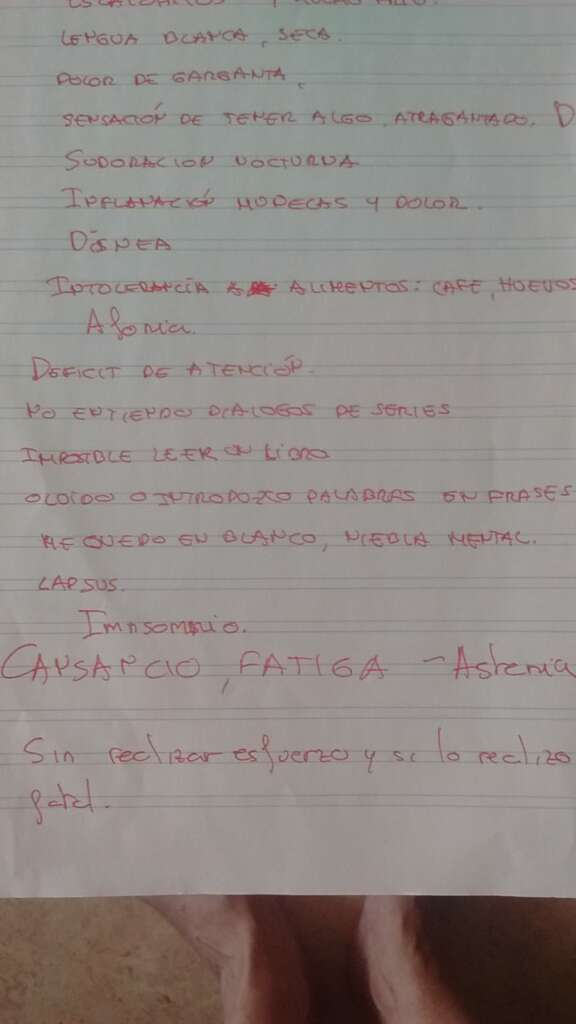 LENGUA BLANCA, SECA.
DOLOR DE GARGANTA,
SENSACIÓN DE TENER ALGO ATRAGANTADO. D
SUDORACION NOCTURNA
INFLAMACIÓN MUÑECAS Y DOLOR.
DISNEA
INTOLERANCIA A ALIMENTOS: CAFE, HUEVOS
Afonia.
DEFICIT DE ATENCIÓN.
NO ENTIENDO DIALOGOS DE SERIES
IMPOSIBLE LEER UN LIBRO
OLVIDO O INTRODUZCO PALABRAS EN FRASES
ME QUEDO EN BLANCO, NIEBLA MENTAL.
LAPSUS.
Imnsomnio.
CANSANCIO, FATIGA - Astenia
Sin realizar esfuerzo y si lo realizo
fatal.